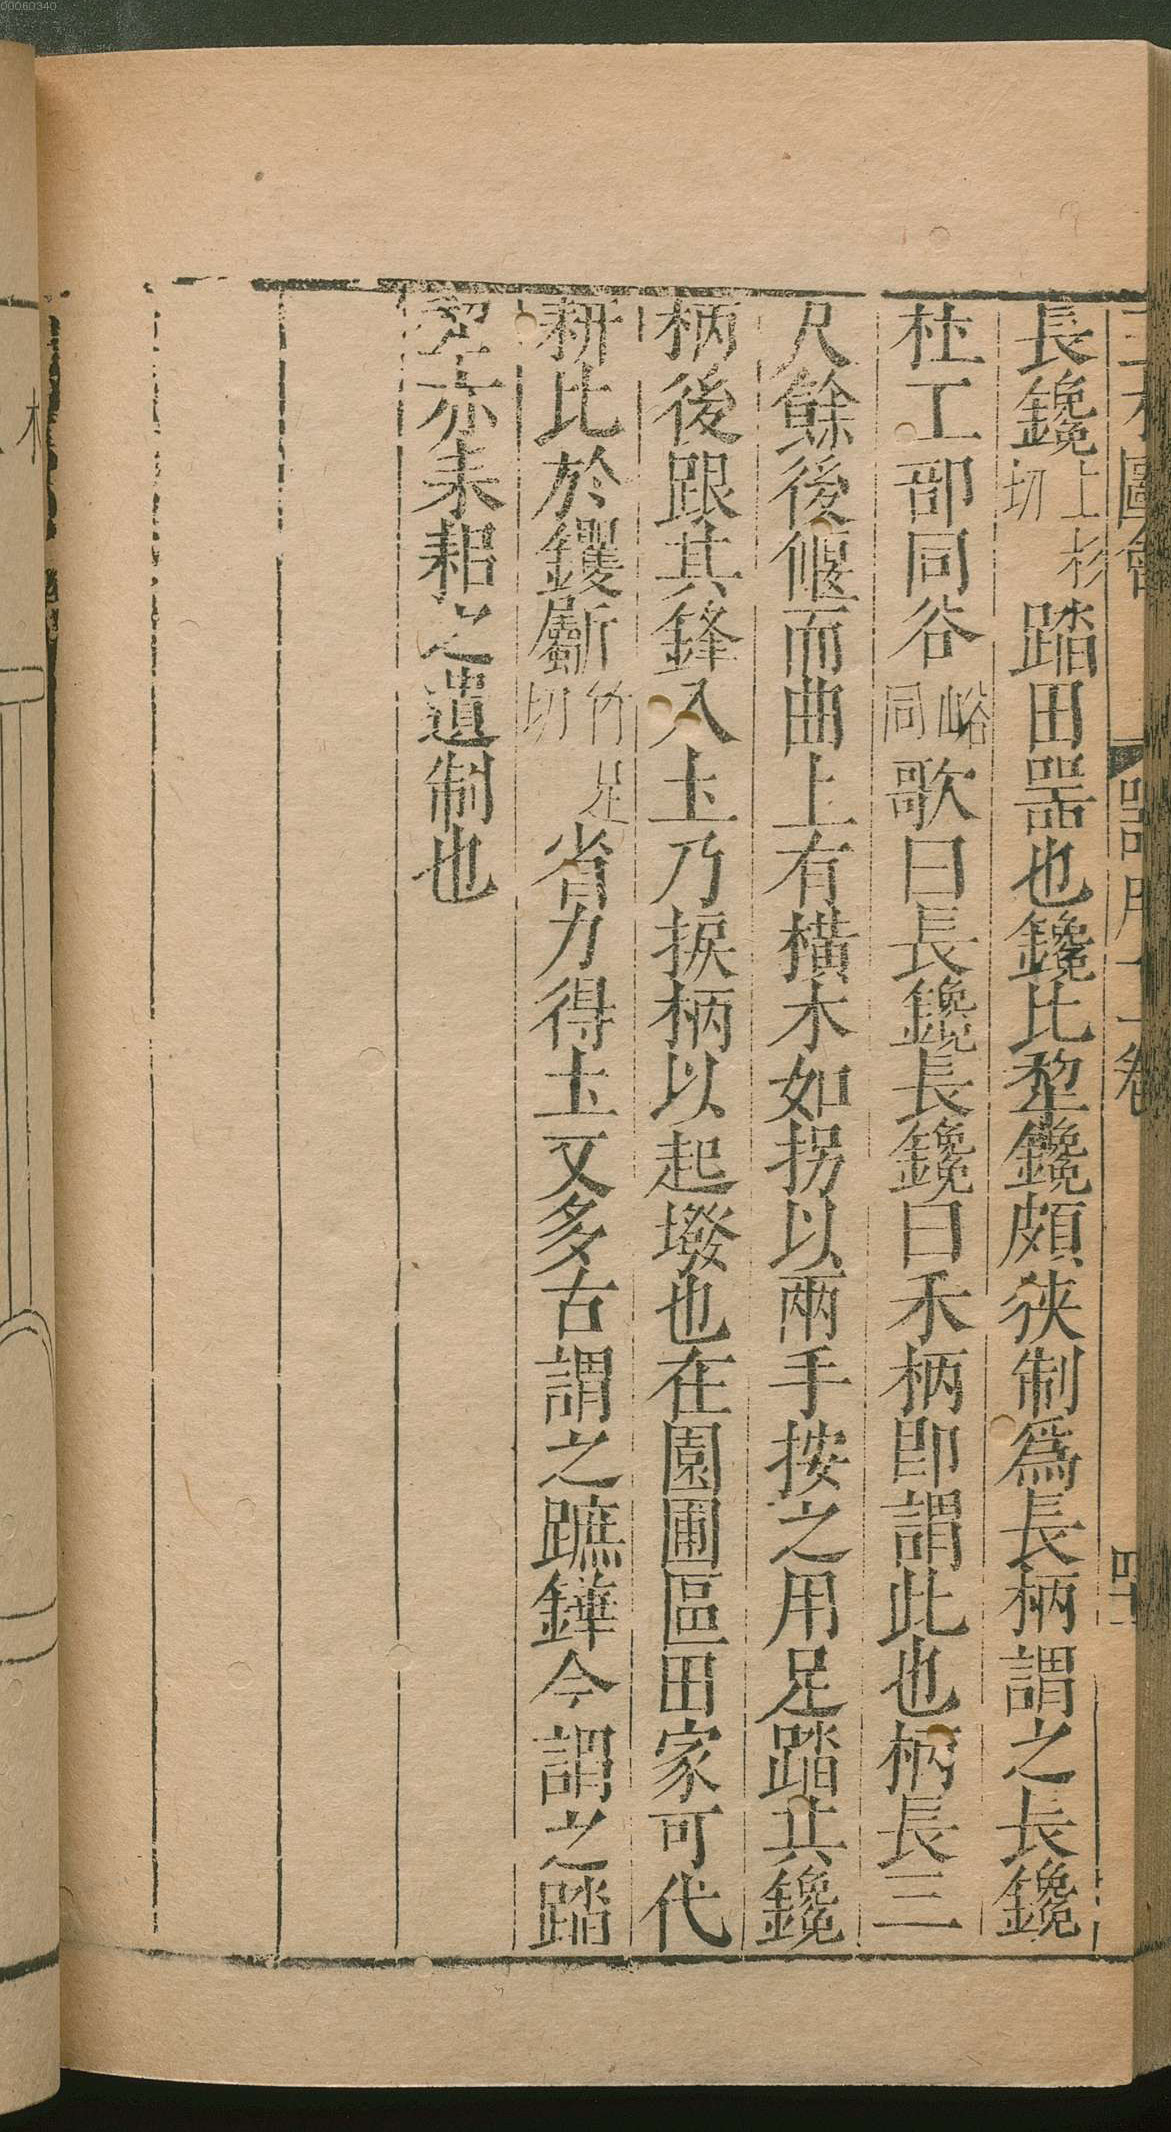 00060340
長鑱上杉切踏田噐也鑱比犂鑱頗狹制爲長柄謂之長鑱
杜工部同谷峪同歌曰長鑱長鑱曰禾柄卽謂此也柄長三
尺餘後偃而曲上有橫木如拐以兩手按之用足踏其鑱
柄後跟其鋒入土乃捩柄以起墢也在園圃區田家可代
耕比於钁斸竹足切省力得土又多古謂之蹠鏵今謂之踏
犂亦耒耜之遺制也